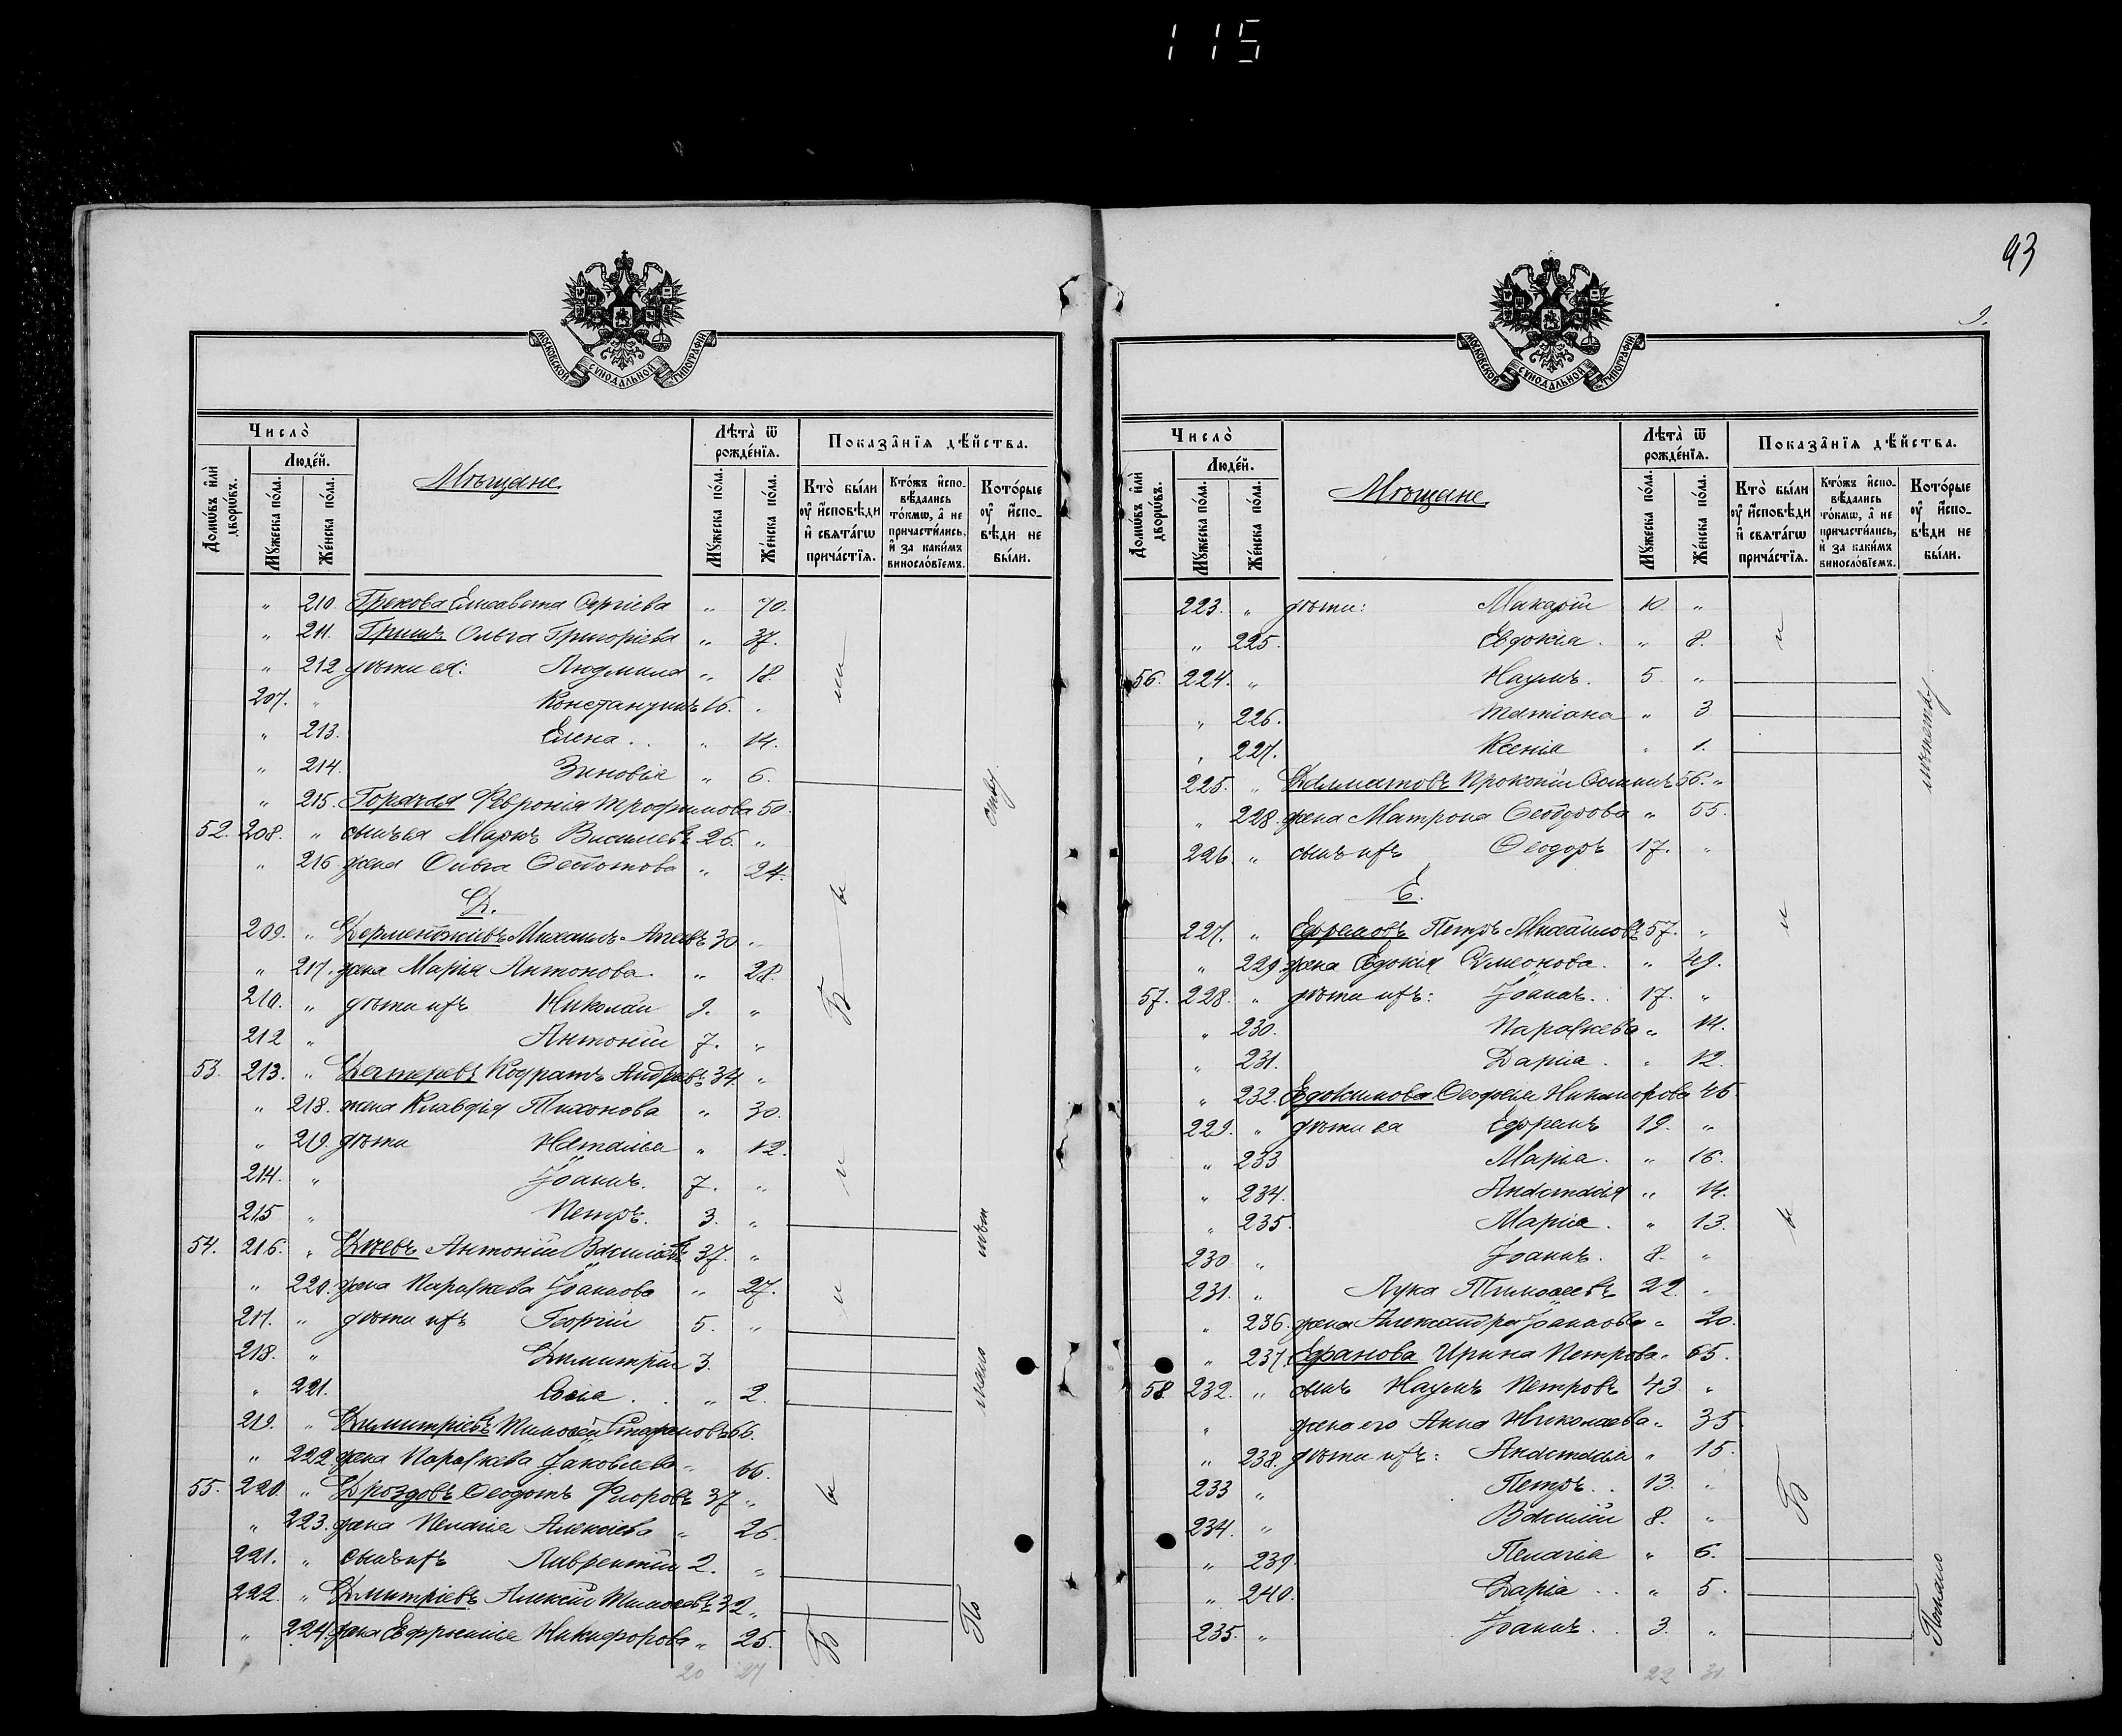 115
93
9.
МОСКОВСКОЙ СѴНОДАЛЬНОЙ ТИПОГРАФІИ
Число̀
Домѡ́въ и҆лѝ дворѡ́въ.
Люде́й.
Мꙋ́жеска по́ла.
Же́нска по́ла.
Мѣщане.
Лѣта̀ ѿ рожде́нїѧ.
Мꙋ́жеска по́ла.
Же́нска по́ла.
Показа̑нїѧ дѣ́йства.
Кто̀ бы́ли ᲂу҆ и҆сповѣ́ди и҆ свѧта́гѡ прича́стїѧ.
Кто́жъ и҆сповѣ́дались то́кмѡ, а҆ не причасти́лись, и҆ за каки́мъ виносло́вїемъ.
Кото́рые ᲂу҆ и҆сповѣ́ди не бы́ли.
" 210. Грекова Елисавета Сергіева " 70.
" 211. Гришъ Ольга Григоріева " 37.
" 212 дѣти ея: Людмила " 18.
207. " Константинъ 16. "
" 213. Елена.. " 14.
" 214. Зиновія " 6.
" 215. Горячая Февронія Трофимова 50.
52. 208. " сынъ ея Маркъ Васильевъ 26. "
" 216 жена Ольга Ѳедотова " 24.
Д.
209. " Михаилъ 30 "
" 217. жена Марія Антонова. " 28.
210. " дѣти ихъ Николай 9. "
212 " Антоній 7. "
53. 213. " Дегтеревъ Кодратъ Андреевъ 34. "
" 218. жена Клавдія Тихонова " 30.
" 219. дѣти Наталія " 12.
214. " Іоаннъ. 7. "
215 " Петръ. 3. "
54. 216. " Антоній Василіевъ 37. "
" 220. жена Параскева Іоаннова " 27.
217. " дѣти ихъ Георгій 5. "
218. " Димитрій 3.
" 221. . . " 2.
219. " Димитріевъ Тимоѳей 66.
" 222. жена Параскева Іаковлева " 66.
55. 220. " Дроздовъ Ѳеодотъ Флоровъ 37 "
" 223. жена Пелагія Алексіева " 26
221. " сынъ ихъ Лаврентій 2. "
222. " Дмитріевъ Алексій Тимоѳеевъ 32 "
" 224. жена Евфросинія Никифорова " 25.
20 27
Б ы л и
Б ы л и
По мало лѣт ству
Число̀
Домѡ́въ и҆лѝ дворѡ́въ.
Люде́й.
Мꙋ́жеска по́ла.
Же́нска по́ла.
Мѣщане.
Лѣта̀ ѿ рожде́нїѧ.
Мꙋ́жеска по́ла.
Же́нска по́ла.
Показа̑нїѧ дѣ́йства.
Кто̀ бы́ли ᲂу҆ и҆сповѣ́ди и҆ свѧта́гѡ прича́стїѧ.
Кто́жъ и҆сповѣ́дались то́кмѡ, а҆ не причасти́лись, и҆ за каки́мъ виносло́вїемъ.
Кото́рые ᲂу҆ и҆сповѣ́ди не бы́ли.
МОСКОВСКОЙ СѴНОДАЛЬНОЙ ТИПОГРАФІИ
223. " дѣти: Макарій 10. "
" 225. Евдокія. " 8.
56. 224. " Наумъ. 5 "
" 226. Татіана " 3
" 227. Ксенія " 1.
225. " Далматовъ Прокопій 56. "
" 228. жена Матрона Ѳеодорова " 55.
226. " сынъ ихъ Ѳеодоръ 17. "
Е.
227. " Ефремовъ Петръ Михаиловъ 57. "
" 229. жена Евдокія Симеонова. " 49.
57. 228. " дѣти ихъ: Іоаннъ.. 17. "
" 230. Параскева " 14.
" 231. Дарія. " 12.
" 232. Евдокимова Никанорова 46
229. " дѣти ея Ефремъ 19. "
" 233 Марія. " 16.
" 234. Анастасія " 14.
" 235. Марія. " 13.
230 " Іоаннъ. 8. "
231. " Лука Тимоѳеевъ 22 "
" 236. жена Александра Іоаннова " 20.
" 237. Ефанова Ирина Петрова " 65.
58. 232. " сынъ Наумъ Петровъ 43 "
" жена его Анна Николаева " 35
" 238. дѣти ихъ: Анастасія " 15.
233 " Петръ.. 13. "
234. " Василій 8. "
" 239. Пелагія " 6.
" 240. Дарія.. " 5.
235. " Іоаннъ.. 3. "
22 31
Б ы л и
По мало лѣтству